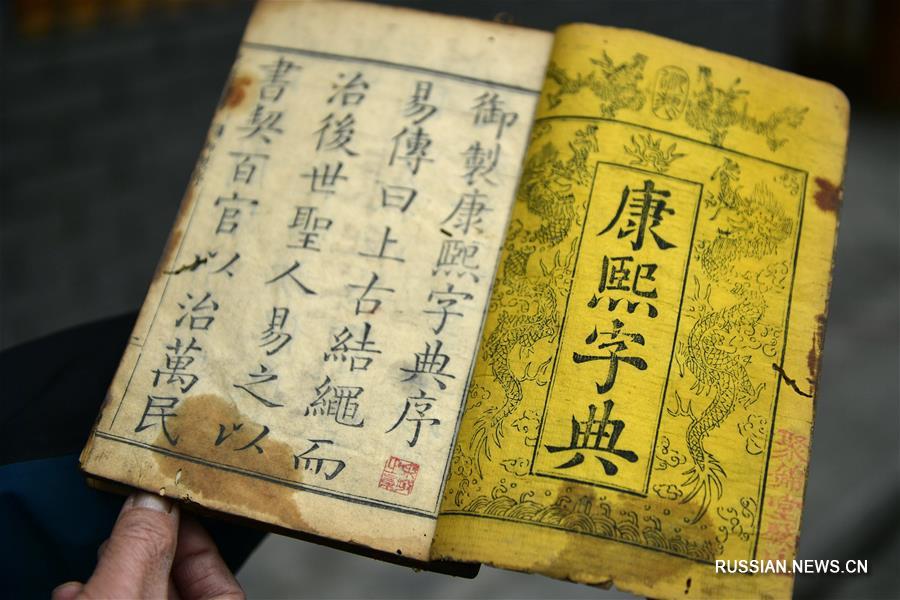 康熙字典
御製康熙字典序
易傳曰上古結繩而
治後世聖人易之以
書契百官以治萬民
RUSSIAN.NEWS.CN